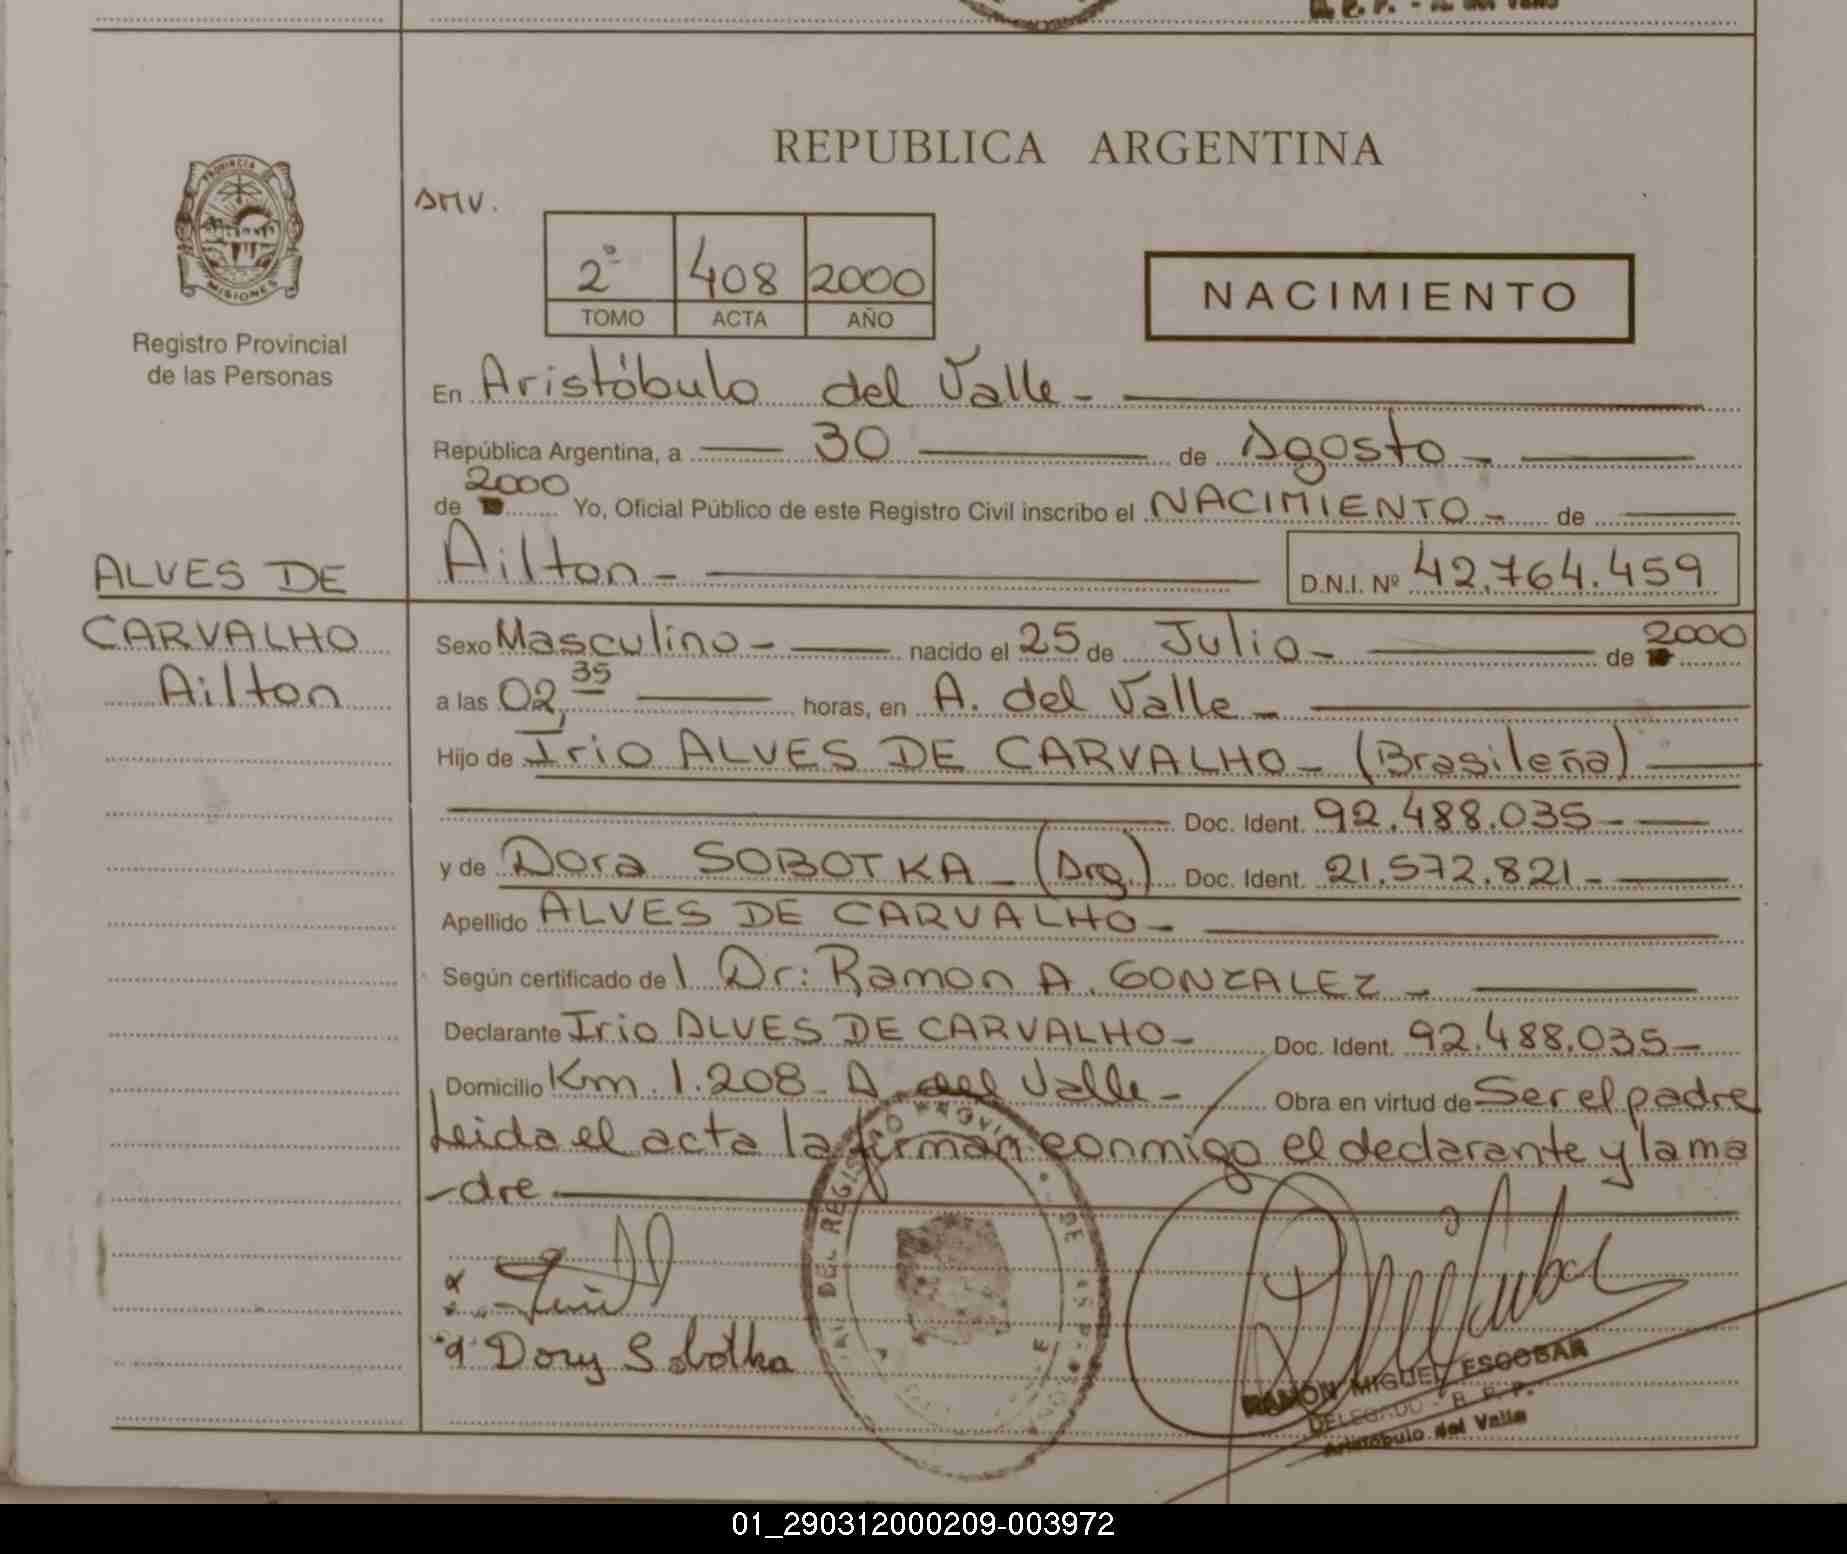 REPUBLICA ARGENTINA
PROVINCIA DE
MISIONES
Registro Provincial
de las Personas
2º 408 2000
TOMO ACTA AÑO
NACIMIENTO
En Aristóbulo del Valle -
República Argentina, a 30 de Agosto -
2000
de Yo, Oficial Público de este Registro Civil inscribo el NACIMIENTO - de
Ailton - D.N.I. Nº 42.764.459
ALVES DE
CARVALHO
Ailton
Sexo Masculino - nacido el 25 de Julio - de 2000
a las 02,35 horas, en A. del Valle -
Hijo de Irio ALVES DE CARVALHO - (Brasileña)
Doc. Ident. 92.488.035 -
y de Dora SOBOTKA - (Arg.) Doc. Ident. 21.572.821 -
Apellido ALVES DE CARVALHO -
Según certificado de l Dr: Ramon A. GONZALEZ -
Declarante Irio ALVES DE CARVALHO - Doc. Ident. 92.488.035 -
Domicilio Km. 1.208 - A del Valle - Obra en virtud de Ser el padre
Leida el acta la firman conmigo el declarante y la ma
-dre
Dory Sobotka
RAMON MIGUEL ESCOBAR
DELEGADO - R. P. P.
Aristóbulo del Valle
01_290312000209-003972